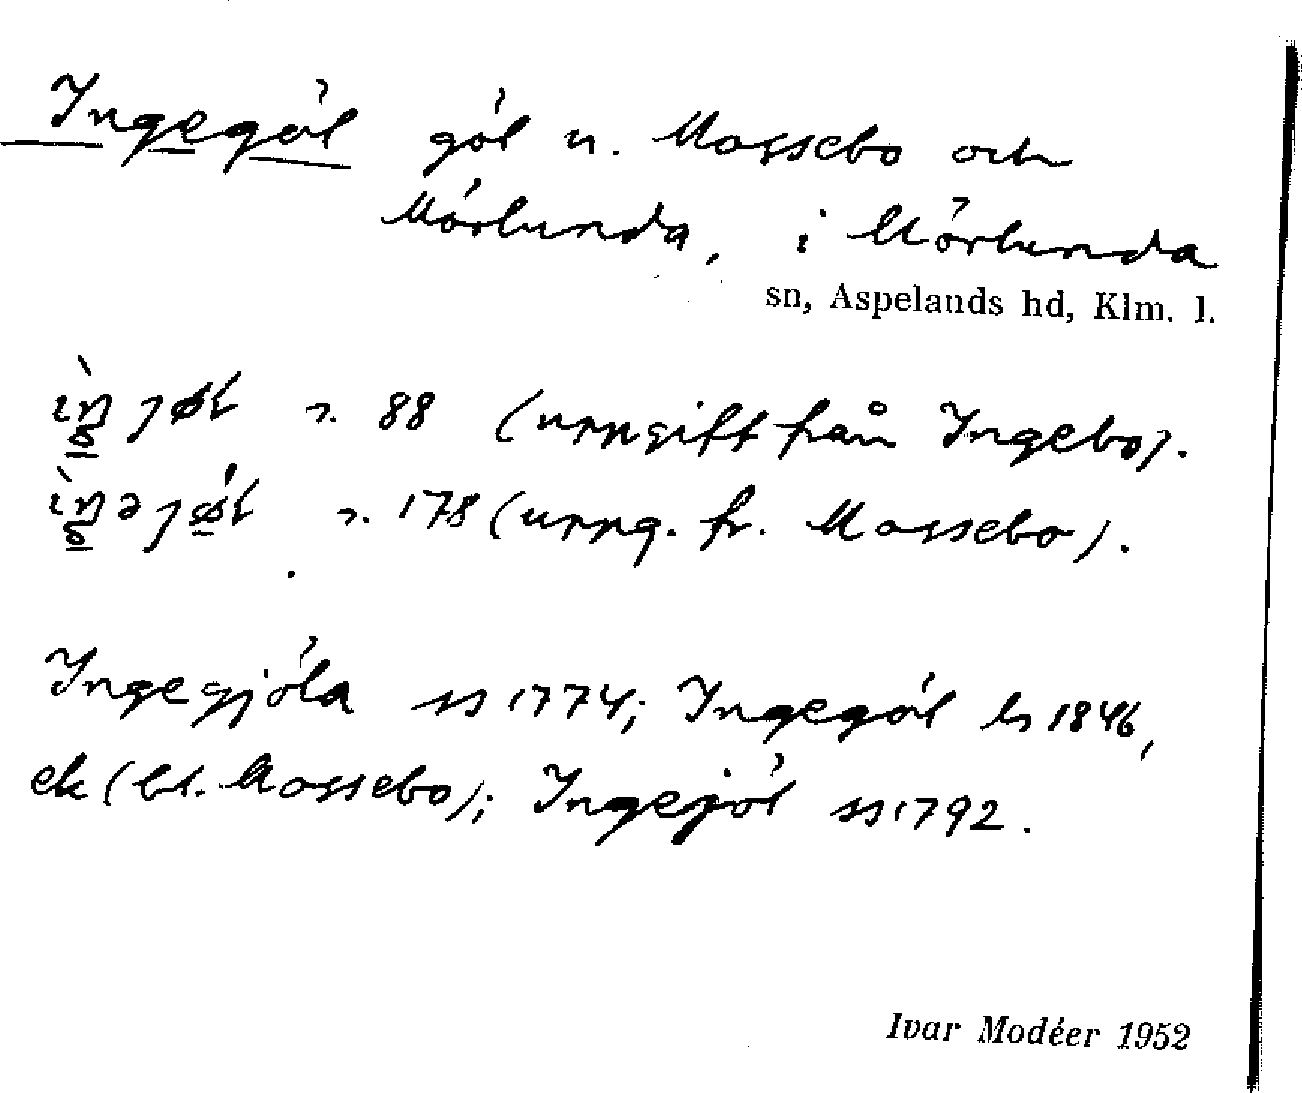 Ingegöl göl u. Mossebo och
Mörlunda, i Mörlunda
sn, Aspelands hd, Klm. l.
s. 88 (uppgift från Ingebo).
s. 178 (uppg. fr. Mossebo).
Ingegjöla ss 1774; Ingegöl ls 1846,
ek (bl. Mossebo); Ingejöl ss 1792.
Ivar Modéer 1952